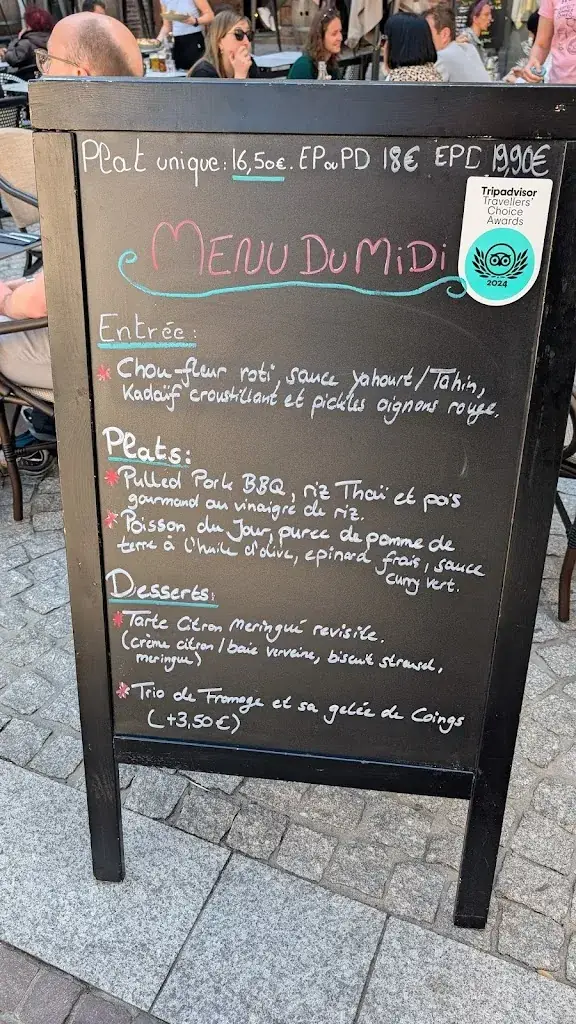 Plat unique: 16,50€. EP ou PD 18€ EPD 19,90€
Tripadvisor
Travellers'
Choice
Awards
2024
MENU DU MIDI
Entrée:
* Chou-fleur roti, sauce yahourt/Tahin,
Kadaïf croustillant et pickles oignons rouge.
Plats:
* Pulled Pork BBQ, riz Thaï et pois
gourmand au vinaigre de riz.
* Poisson du Jour, puree de pomme de
terre à l'huile d'olive, epinard frais, sauce
curry vert.
Desserts:
* Tarte Citron Meringué revisite.
(crème citron/baie verveine, biscuit streusel,
meringue)
* Trio de Fromage et sa gelée de Coings
(+3,50€)